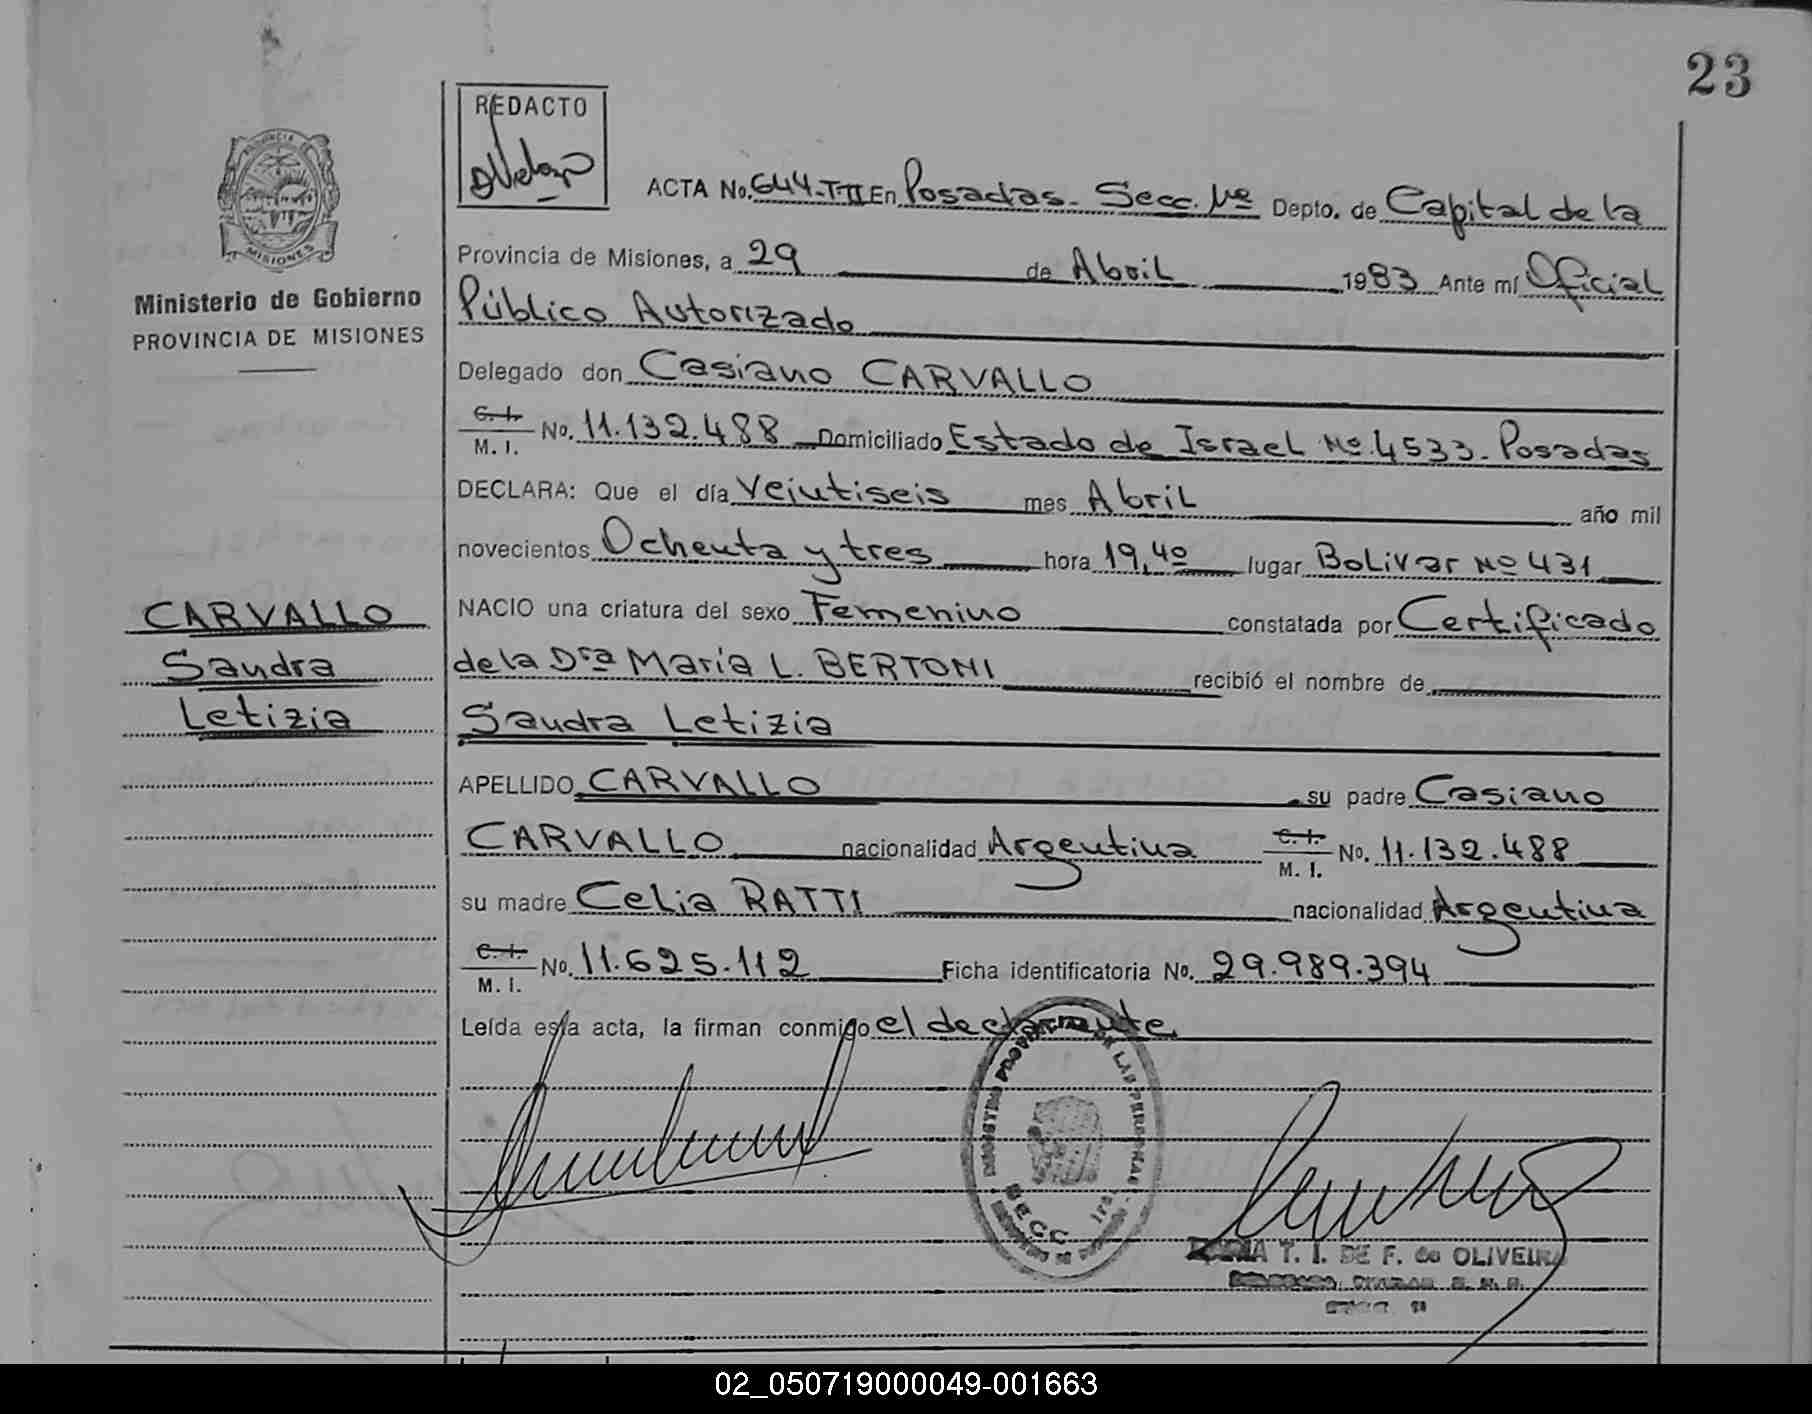 23
REDACTO
PROVINCIA DE
MISIONES
Ministerio de Gobierno
PROVINCIA DE MISIONES
ACTA No. 644-T-II En Posadas. Secc. 1ª Depto. de Capital de la
Provincia de Misiones, a 29 de Abril 1983 Ante mí Oficial
Público Autorizado
Delegado don Casiano CARVALLO
C. I.
M. I. No. 11.132.488 Domiciliado Estado de Israel Nº 4533. Posadas
DECLARA: Que el día Veintiseis mes Abril año mil
novecientos Ochenta y tres hora 19,40 lugar Bolivar Nº 431
NACIO una criatura del sexo Femenino constatada por Certificado
de la Dra Maria L. BERTONI recibió el nombre de
Sandra Letizia
CARVALLO
Sandra
Letizia
APELLIDO CARVALLO su padre Casiano
CARVALLO nacionalidad Argentina C. I.
M. I. No. 11.132.488
su madre Celia RATTI nacionalidad Argentina
C. I.
M. I. No. 11.625.112 Ficha identificatoria No. 29.989.394
Leída esta acta, la firman conmigo el declarante.
PROVINCIAL DE LAS PERSONAS
SECC 1ra
T. I. DE F. de OLIVEIRA
02_050719000049-001663